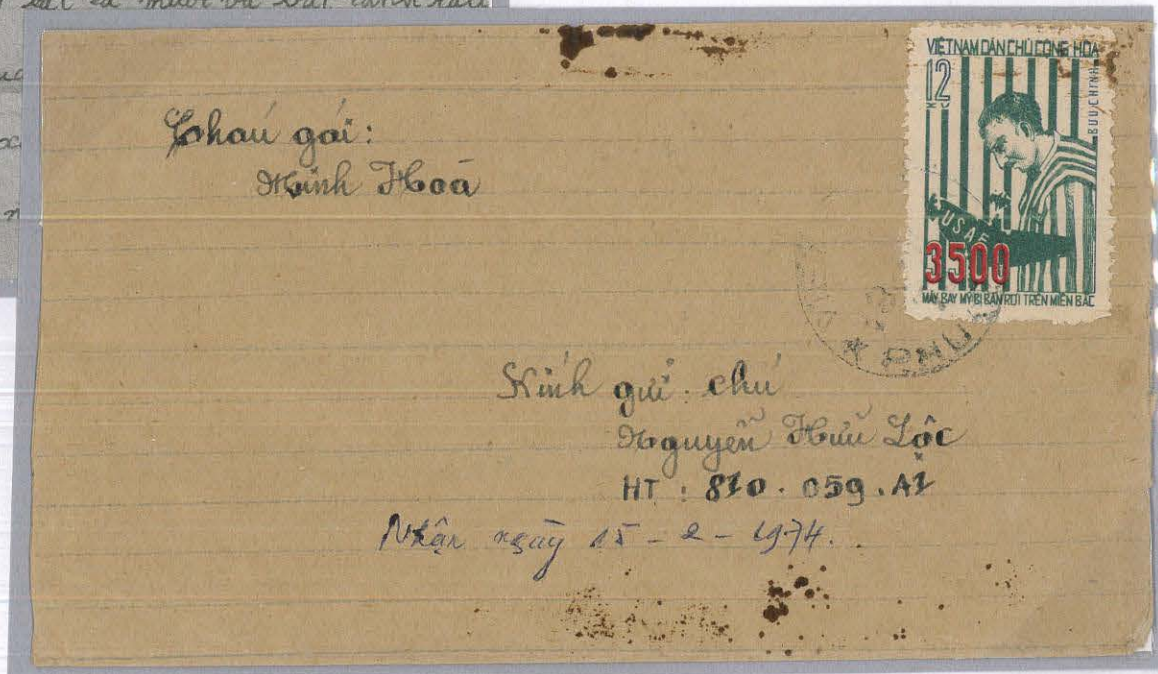 Cháu gái:
Minh Hoà
VIỆT NAM DÂN CHỦ CỘNG HÒA
12
XU
BƯU CHÍNH
USAF
3500
MÁY BAY MỸ BỊ BẮN RƠI TRÊN MIỀN BẮC
PHÚ
Kính gửi: chú
Nguyễn Hữu Lộc
HT: 810.059.A1
Nhận ngày 15-2-1974.